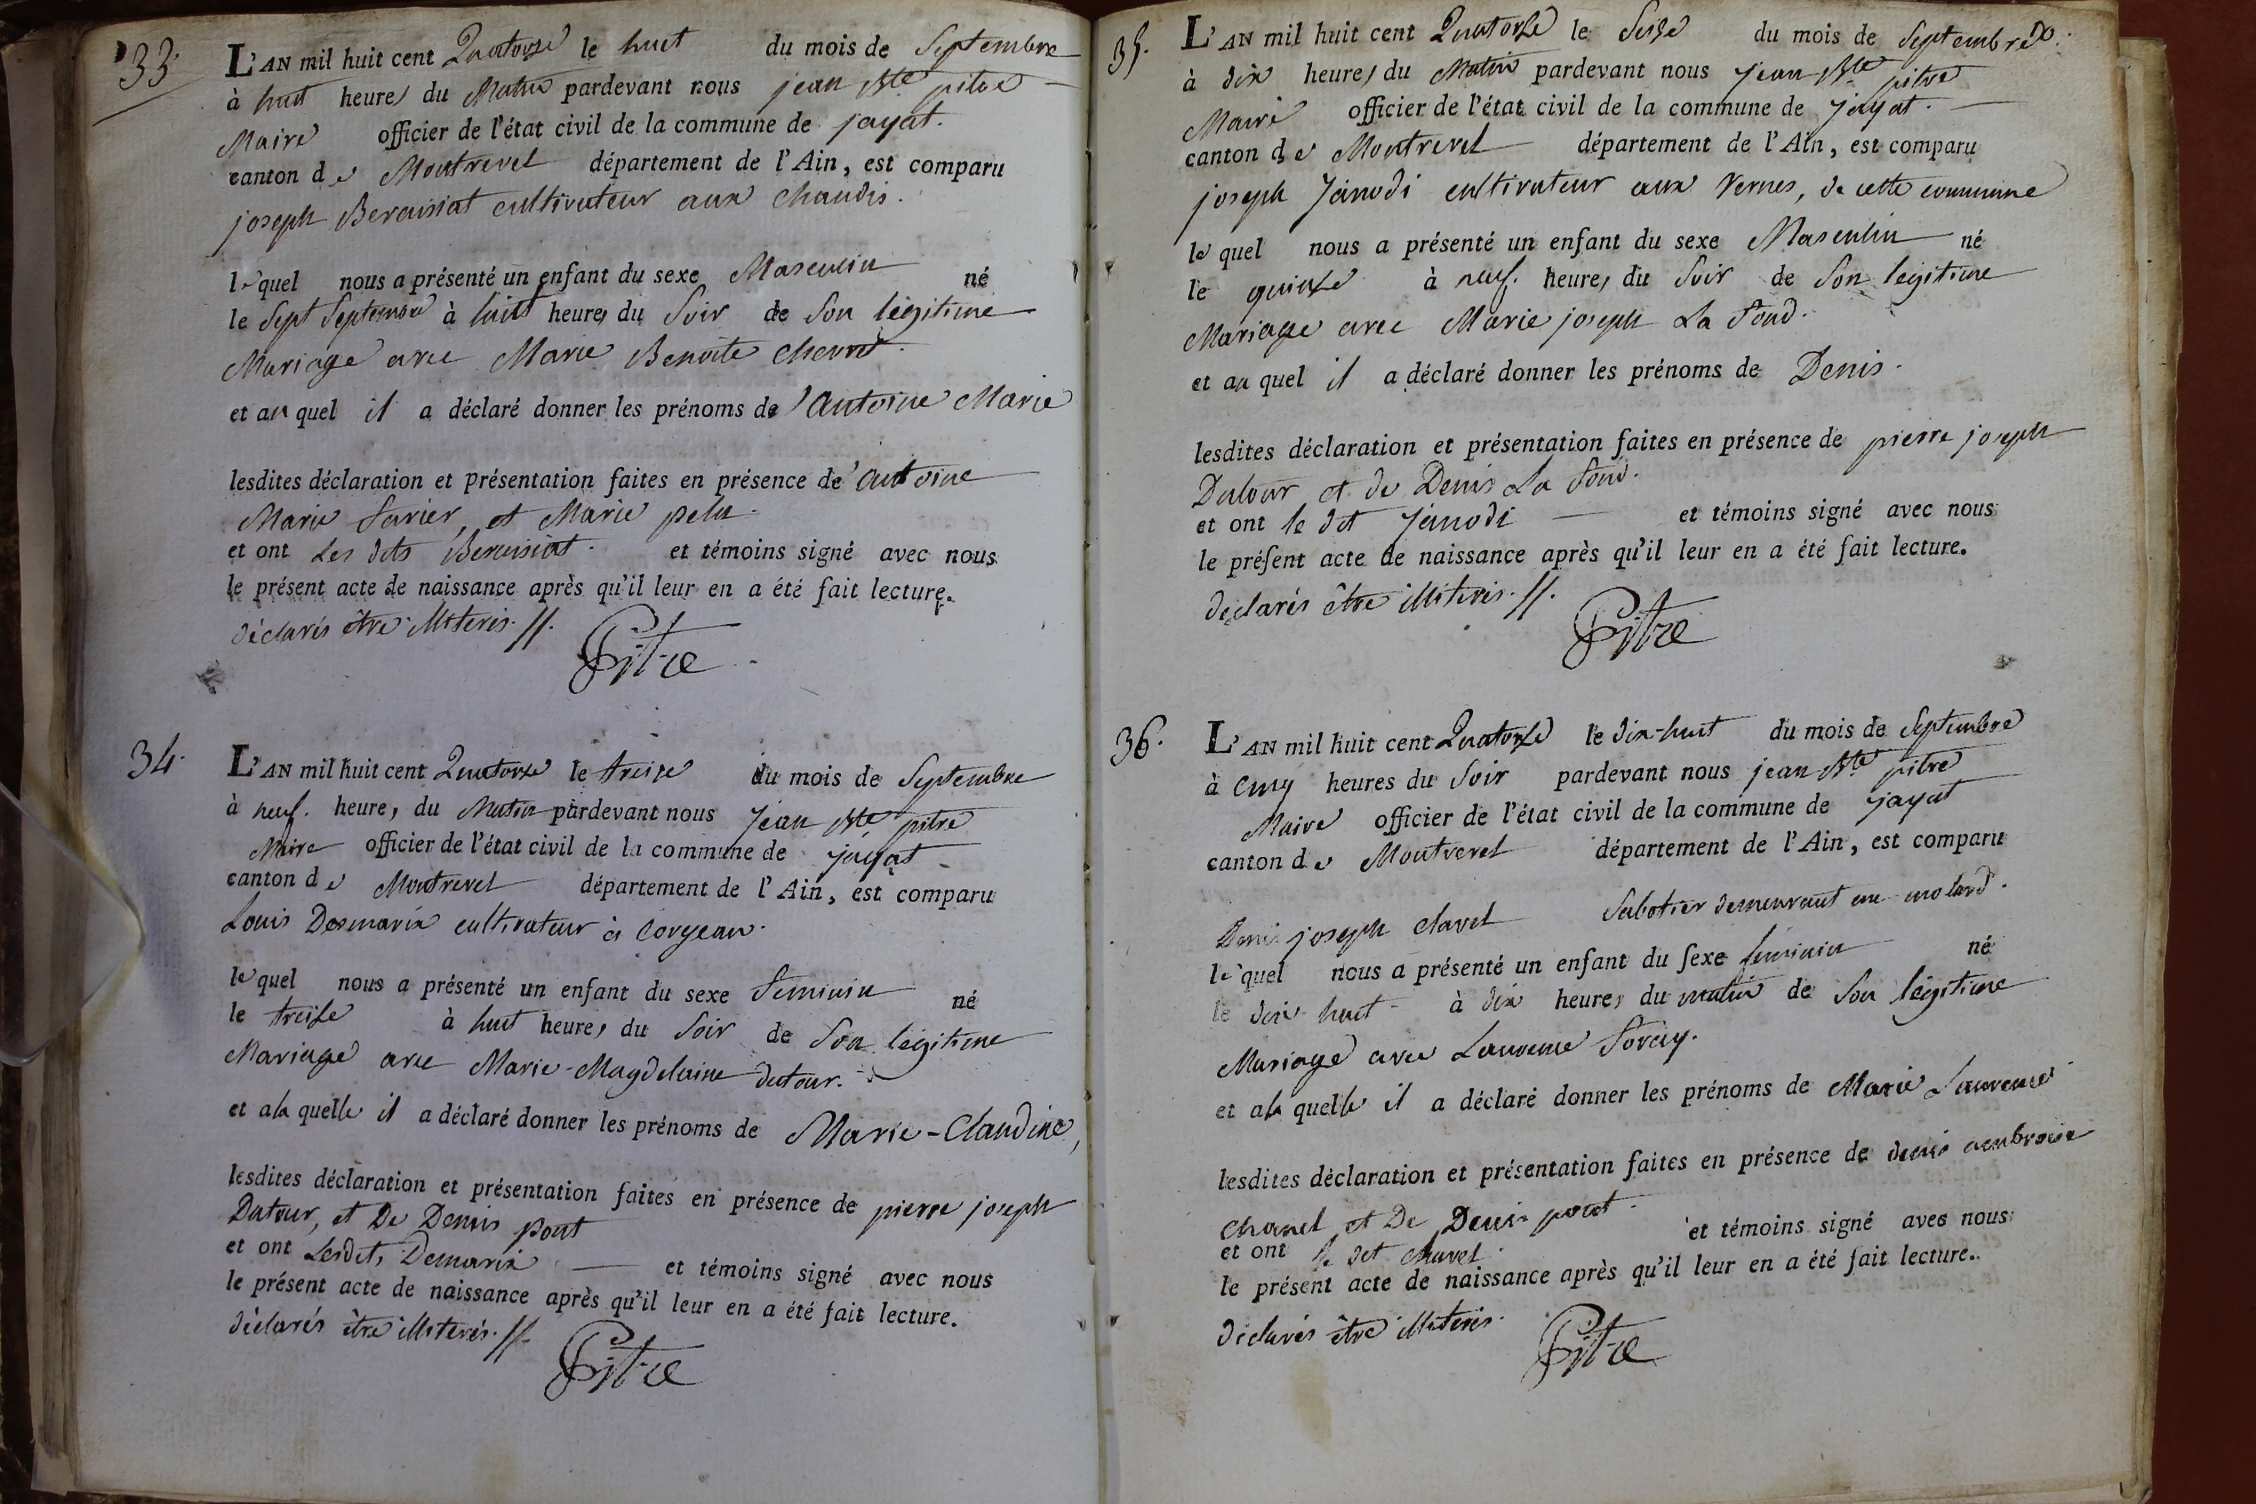 33.
L'AN mil huit cent Quatorze le huit du mois de Septembre
à huit heures du Matin pardevant nous jean Bte pitre
Maire officier de l'état civil de la commune de jayat.
canton de Montrevel département de l'Ain, est comparu
joseph Beraissiat cultivateur aux chaudis.
lequel nous a présenté un enfant du sexe Masculin né
le Sept Septembre à huit heures du Soir de Son légitime
Mariage avec Marie Benoite chevret.
et au quel il a déclaré donner les prénoms de Antoine Marie
lesdites déclaration et présentation faites en présence de Antoine
Marie favier, et Marie pelu.
et ont Les dits Beraissiat. et témoins signé avec nous
le présent acte de naissance après qu'il leur en a été fait lecture.
déclarés être illiterés. //.
Pitre
34.
L'AN mil huit cent Quatorze le treize du mois de Septembre
à neuf. heures du Matin pardevant nous jean Bte pitre
Maire officier de l'état civil de la commune de jayat
canton de Montrevel département de l'Ain, est comparu
Louis Desmaris cultivateur à Corgean.
lequel nous a présenté un enfant du sexe feminin né
le treize à huit heures du Soir de Son légitime
Mariage avec Marie-Magdelaine dutour.
et a la quelle il a déclaré donner les prénoms de Marie-Claudine,
lesdites déclaration et présentation faites en présence de pierre joseph
Dutour, et De Denis pont
et ont Lesdits Demaris et témoins signé avec nous
le présent acte de naissance après qu'il leur en a été fait lecture.
déclarés être illiterés. //.
Pitre
35.
L'AN mil huit cent Quatorze le Seize du mois de Septembre
à dix heures du Matin pardevant nous jean Bte pitre
Maire officier de l'état civil de la commune de jayat.
canton de Montrevel département de l'Ain, est comparu
joseph Janodi cultivateur aux Vernes, de cette commune
le quel nous a présenté un enfant du sexe Masculin né
le quinze à neuf. heures du Soir de Son légitime
Mariage avec Marie joseph La fond.
et au quel il a déclaré donner les prénoms de Denis.
lesdites déclaration et présentation faites en présence de pierre joseph
Dutour et de Denis La fond.
et ont le dit Janodi et témoins signé avec nous
le présent acte de naissance après qu'il leur en a été fait lecture.
déclarés être illiterés. //.
Pitre
36.
L'AN mil huit cent Quatorze le dix-huit du mois de Septembre
à Cinq heures du Soir pardevant nous jean Bte pitre
Maire officier de l'état civil de la commune de jayat
canton de Montrevel département de l'Ain, est comparu
Denis joseph clavel Sabotier demeurant au molard.
lequel nous a présenté un enfant du sexe féminin né
le dix-huit à dix heures du matin de Son légitime
Mariage avec Laurence foray.
et a la quelle il a déclaré donner les prénoms de Marie Laurence
lesdites déclaration et présentation faites en présence de denis ambroise
chanel et De Denis pont.
et ont le dit clavel. et témoins signé avec nous
le présent acte de naissance après qu'il leur en a été fait lecture.
déclarés être illiterés.
Pitre